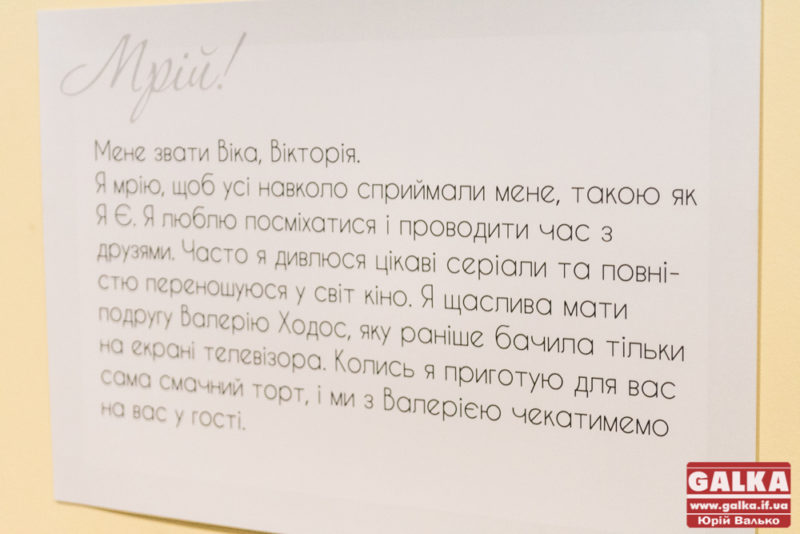 Мрій!
Мене звати Віка, Вікторія.
Я мрію, щоб усі навколо сприймали мене, такою як
Я Є. Я люблю посміхатися і проводити час з
друзями. Часто я дивлюся цікаві серіали та повні-
стю переношуюся у світ кіно. Я щаслива мати
подругу Валерію Ходос, яку раніше бачила тільки
на екрані телевізора. Колись я приготую для вас
сама смачний торт, і ми з Валерією чекатимемо
на вас у гості.
GALKA
www.galka.if.ua
Юрій Валько